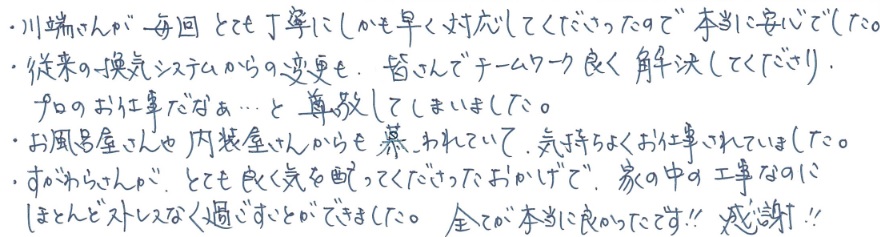 ・川端さんが毎回とても丁寧にしかも早く対応してくださったので本当に安心でした。
・従来の換気システムからの変更も、皆さんでチームワーク良く解決してくださり、
プロのお仕事だなぁ…と尊敬してしまいました。
・お風呂屋さんや内装屋さんからも慕われていて、気持ちよくお仕事されていました。
・すがわらさんが、とても良く気を配ってくださったおかげで、家の中の工事なのに
ほとんどストレスなく過ごすことができました。全てが本当に良かったです!! 感謝!!